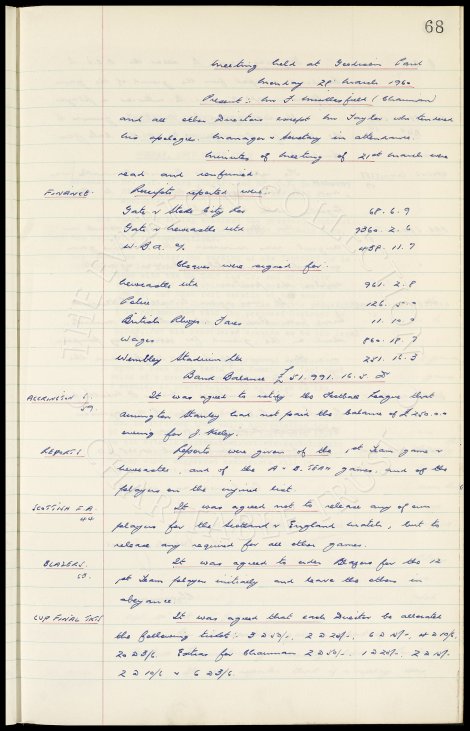 68
Meeting held at Goodison Park
Monday 28 March 1960
Present: Mr F. Micklesfield (Chairman)
and all other Directors except Mr Taylor who tendered
his apologies. Manager & Secretary in attendance.
Minutes of Meeting of 21st March were
read and confirmed.
FINANCE. Receipts reported were:
Gate v Stoke City Res 68. 6. 9
Gate v Newcastle Utd 7360. 2. 6
W.B.A. % 458. 11. 7
Cheques were signed for:
Newcastle Utd 961. 2. 8
Police 126. 5. 0
British Rlwys. Fares 11. 10. 0
Wages 860. 18. 7
Wembley Stadium Ltd 251. 16. 3
Bank Balance £51. 991. 16. 5
ACCRINGTON It was agreed to notify the Football League that
Accrington Stanley had not paid the balance of £250.0.0
owing for J. Keeley.
REPORTS Reports were given of the 1st Team game v
Newcastle, and of the A & B. TEAM games. and of the
players on the injured list.
SCOTTISH F.A. It was agreed not to release any of our
44 players for the Scotland v England match, but to
release any required for all other games.
BLAZERS It was agreed to order Blazers for the 12
1st Team players initially and leave the others in
abeyance.
CUP FINAL TKTS It was agreed that each Director be allocated
the following tickets: 3 @ 50/-, 2 @ 25/-, 6 @ 15/-, 4 @ 10/6,
20 @ 3/6. Extras for Chairman 2 @ 50/-, 1 @ 25/-, 2 @ 15/-
2 @ 10/6 & 6 @ 3/6.